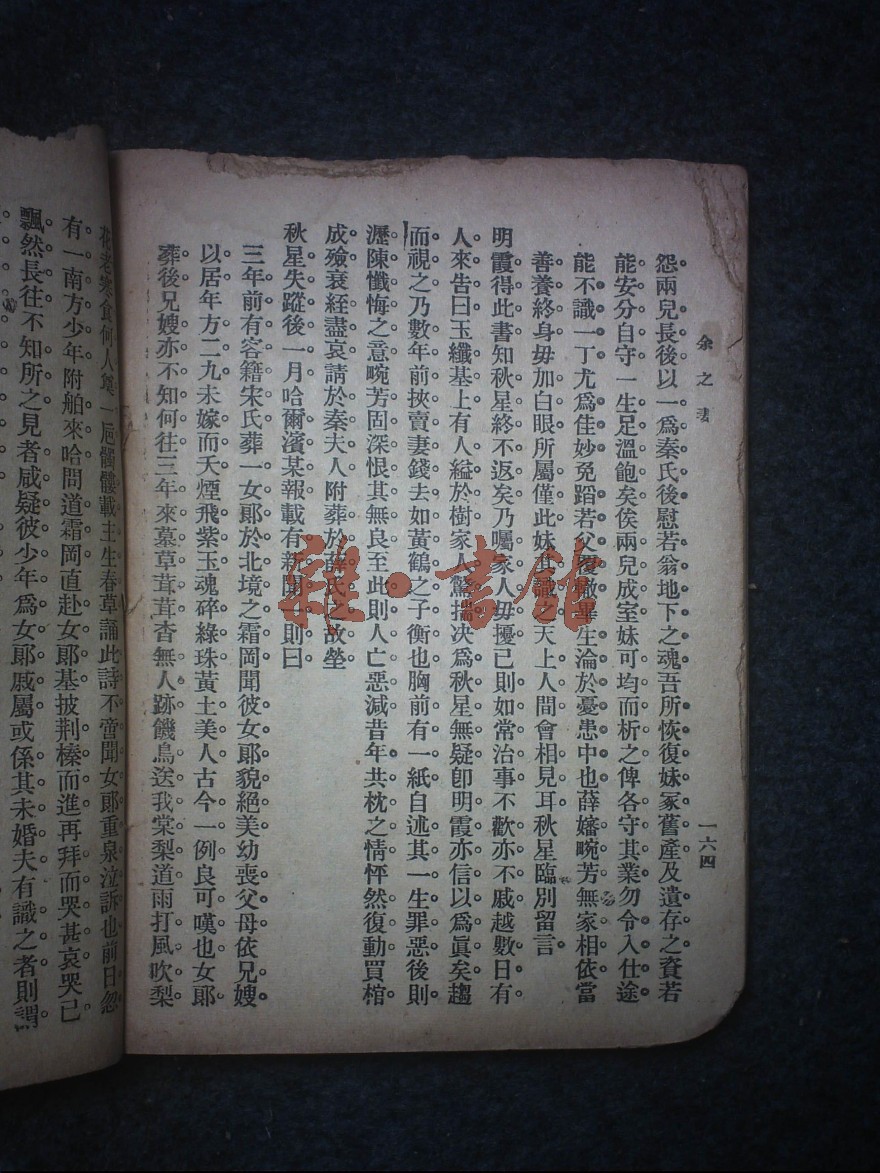 余之妻
一六四
怨兩兒長後以一爲秦氏後慰若翁地下之魂吾所恢復妹家舊產及遺存之資若
能安分自守一生足溫飽矣俟兩兒成室妹可均而析之俾各守其業勿令入仕途
能不識一丁尤爲佳妙免蹈若父覆轍畢生淪於憂患中也薛嬸畹芳無家相依當
善養終身毋加白眼所屬僅此妹其識之天上人間會相見耳秋星臨別留言
明霞得此書知秋星終不返矣乃囑家人毋擾已則如常治事不歡亦不戚越數日有
人來告曰玉纖墓上有人縊於樹家人驚揣决爲秋星無疑卽明霞亦信以爲眞矣趨
而視之乃數年前挾賣妻錢去如黃鶴之子衡也胸前有一紙自述其一生罪惡後則
瀝陳懺悔之意畹芳固深恨其無良至此則人亡惡減昔年共枕之情怦然復動買棺
成殮衰絰盡哀請於秦夫人附葬於薛氏之故塋
秋星失蹤後一月哈爾濱某報載有新聞一則曰
三年前有客籍宋氏葬一女郞於北境之霜岡聞彼女郞貌絕美幼喪父母依兄嫂
以居年方二九未嫁而夭煙飛紫玉魂碎綠珠黃土美人古今一例良可嘆也女郞
葬後兄嫂亦不知何往三年來墓草茸茸杳無人跡饑鳥送我棠梨道雨打風吹梨
花老寒食何人奠一巵髑髏載主生春草誦此詩不啻聞女郞重泉泣訴也前日忽
有一南方少年附舶來哈問道霜岡直赴女郞墓披荆榛而進再拜而哭甚哀哭已
飄然長往不知所之見者咸疑彼少年爲女郞戚屬或係其未婚夫有識之者則謂
雜·書館